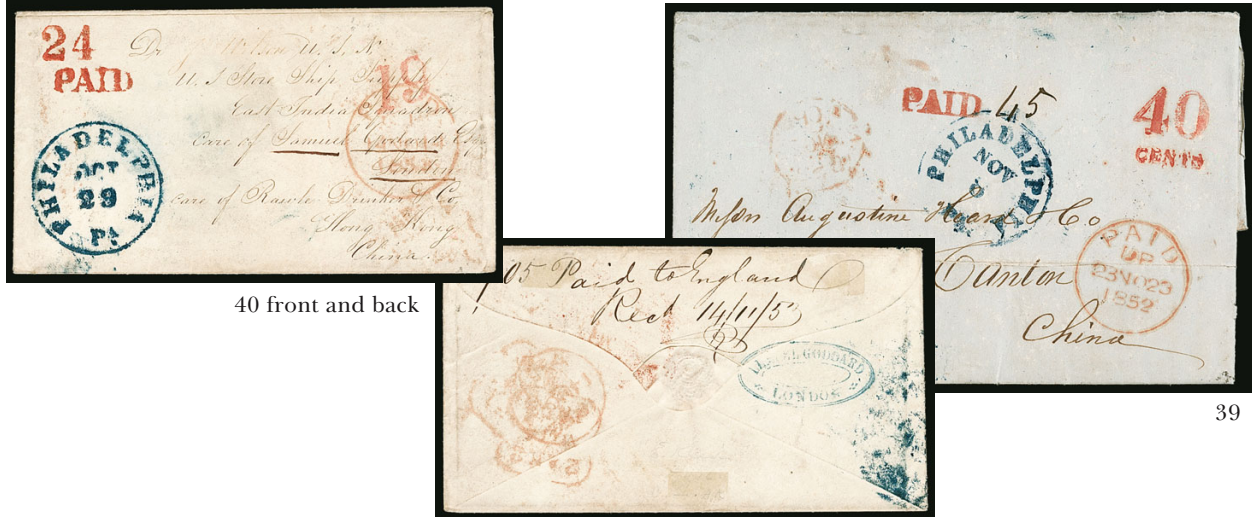 24
PAID
Dr Wilson U.S.N.
U.S Store Ship Supply
East India Squadron
care of Samuel Goddard Esq
London
care of Rawle Drinker & Co
Hong Kong
China.
19
PHILADELPHIA
OCT
29
PA
40 front and back
05 Paid to England
Recd 14/11/53
GODDARD.
LONDON
PAID 45
40
CENTS
PHILADELPHIA
NOV
Messrs Augustine Heard & Co
Canton
China
PAID
23NO23
1852
39